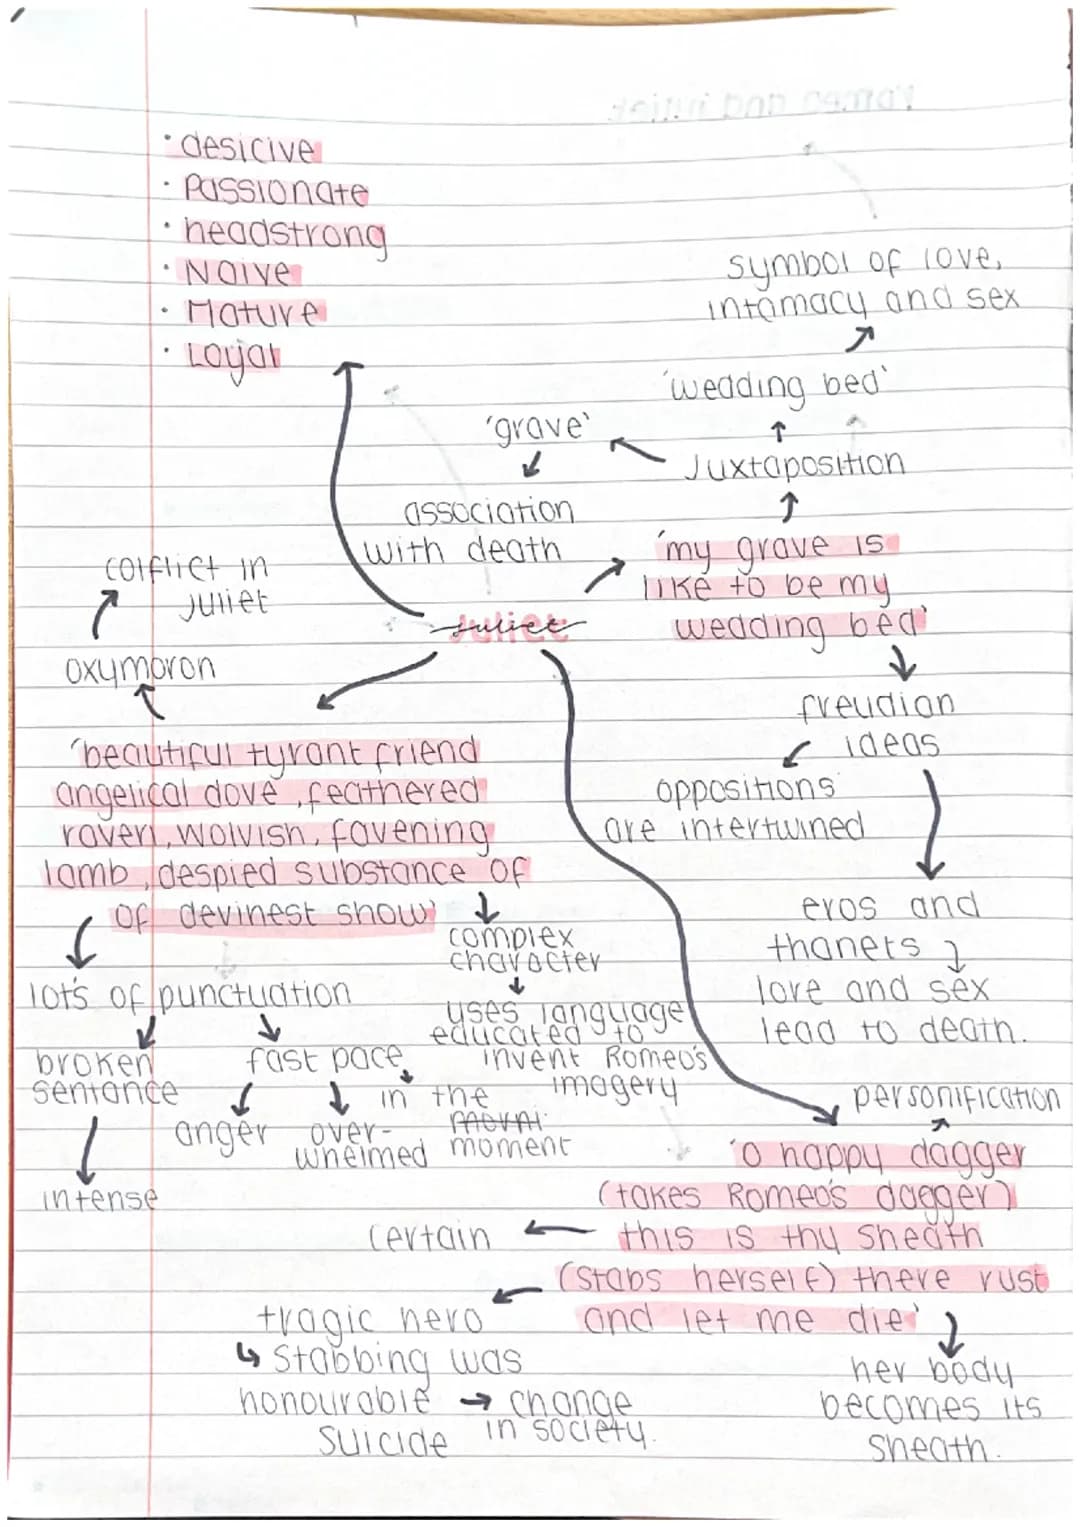 • desicive
• Passionate
• headstrong
• Naive
• Mature
• Loyal
symbol of love,
intamacy and sex
'wedding bed'
'grave'
Juxtaposition
association
with death
'my grave is
like to be my
wedding bed'
conflict in
Juliet
oxymoron
Juliet
freudian
ideas
oppositions
are intertwined
eros and
thanets
love and sex
lead to death.
'beautiful tyrant friend
angelical dove, feathered
raven, wolvish, favening
lamb, despied substance of
of devinest show'
complex
character
uses language
educated to
invent Romeo's
imagery
lots of punctuation
broken
sentance
intense
fast pace
anger
over-
whelmed
in the
moment
personification
'o happy dagger
(takes Romeo's dagger)
this is thy sheath
(stabs herself) there rust
and let me die'
certain
tragic hero
↳ stabbing was
honourable → change
suicide in society.
her body
becomes its
sheath.